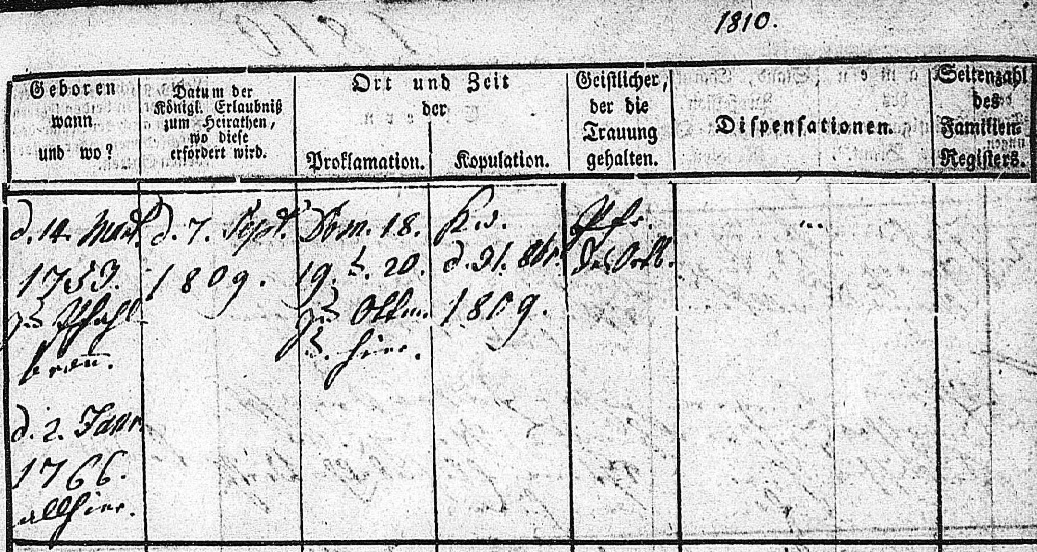 1810.
Geboren
wann
und wo?
Datum der
Königl. Erlaubniß
zum Heirathen,
wo diese
erfordert wird.
Ort und Zeit
der
Proklamation.
Kopulation.
Geistlicher,
der die
Trauung
gehalten.
Dispensationen.
Seitenzahl
des
Familien-
Registers.
d. 14.
1753.
zu Pfahl-
bronn.
d. 2. Janr.
1766.
allhier.
d. 7. Sept.
1809.
Dom. 18.
19. u. 20.
zu
u. hier.
d. 31. 8br.
1809.